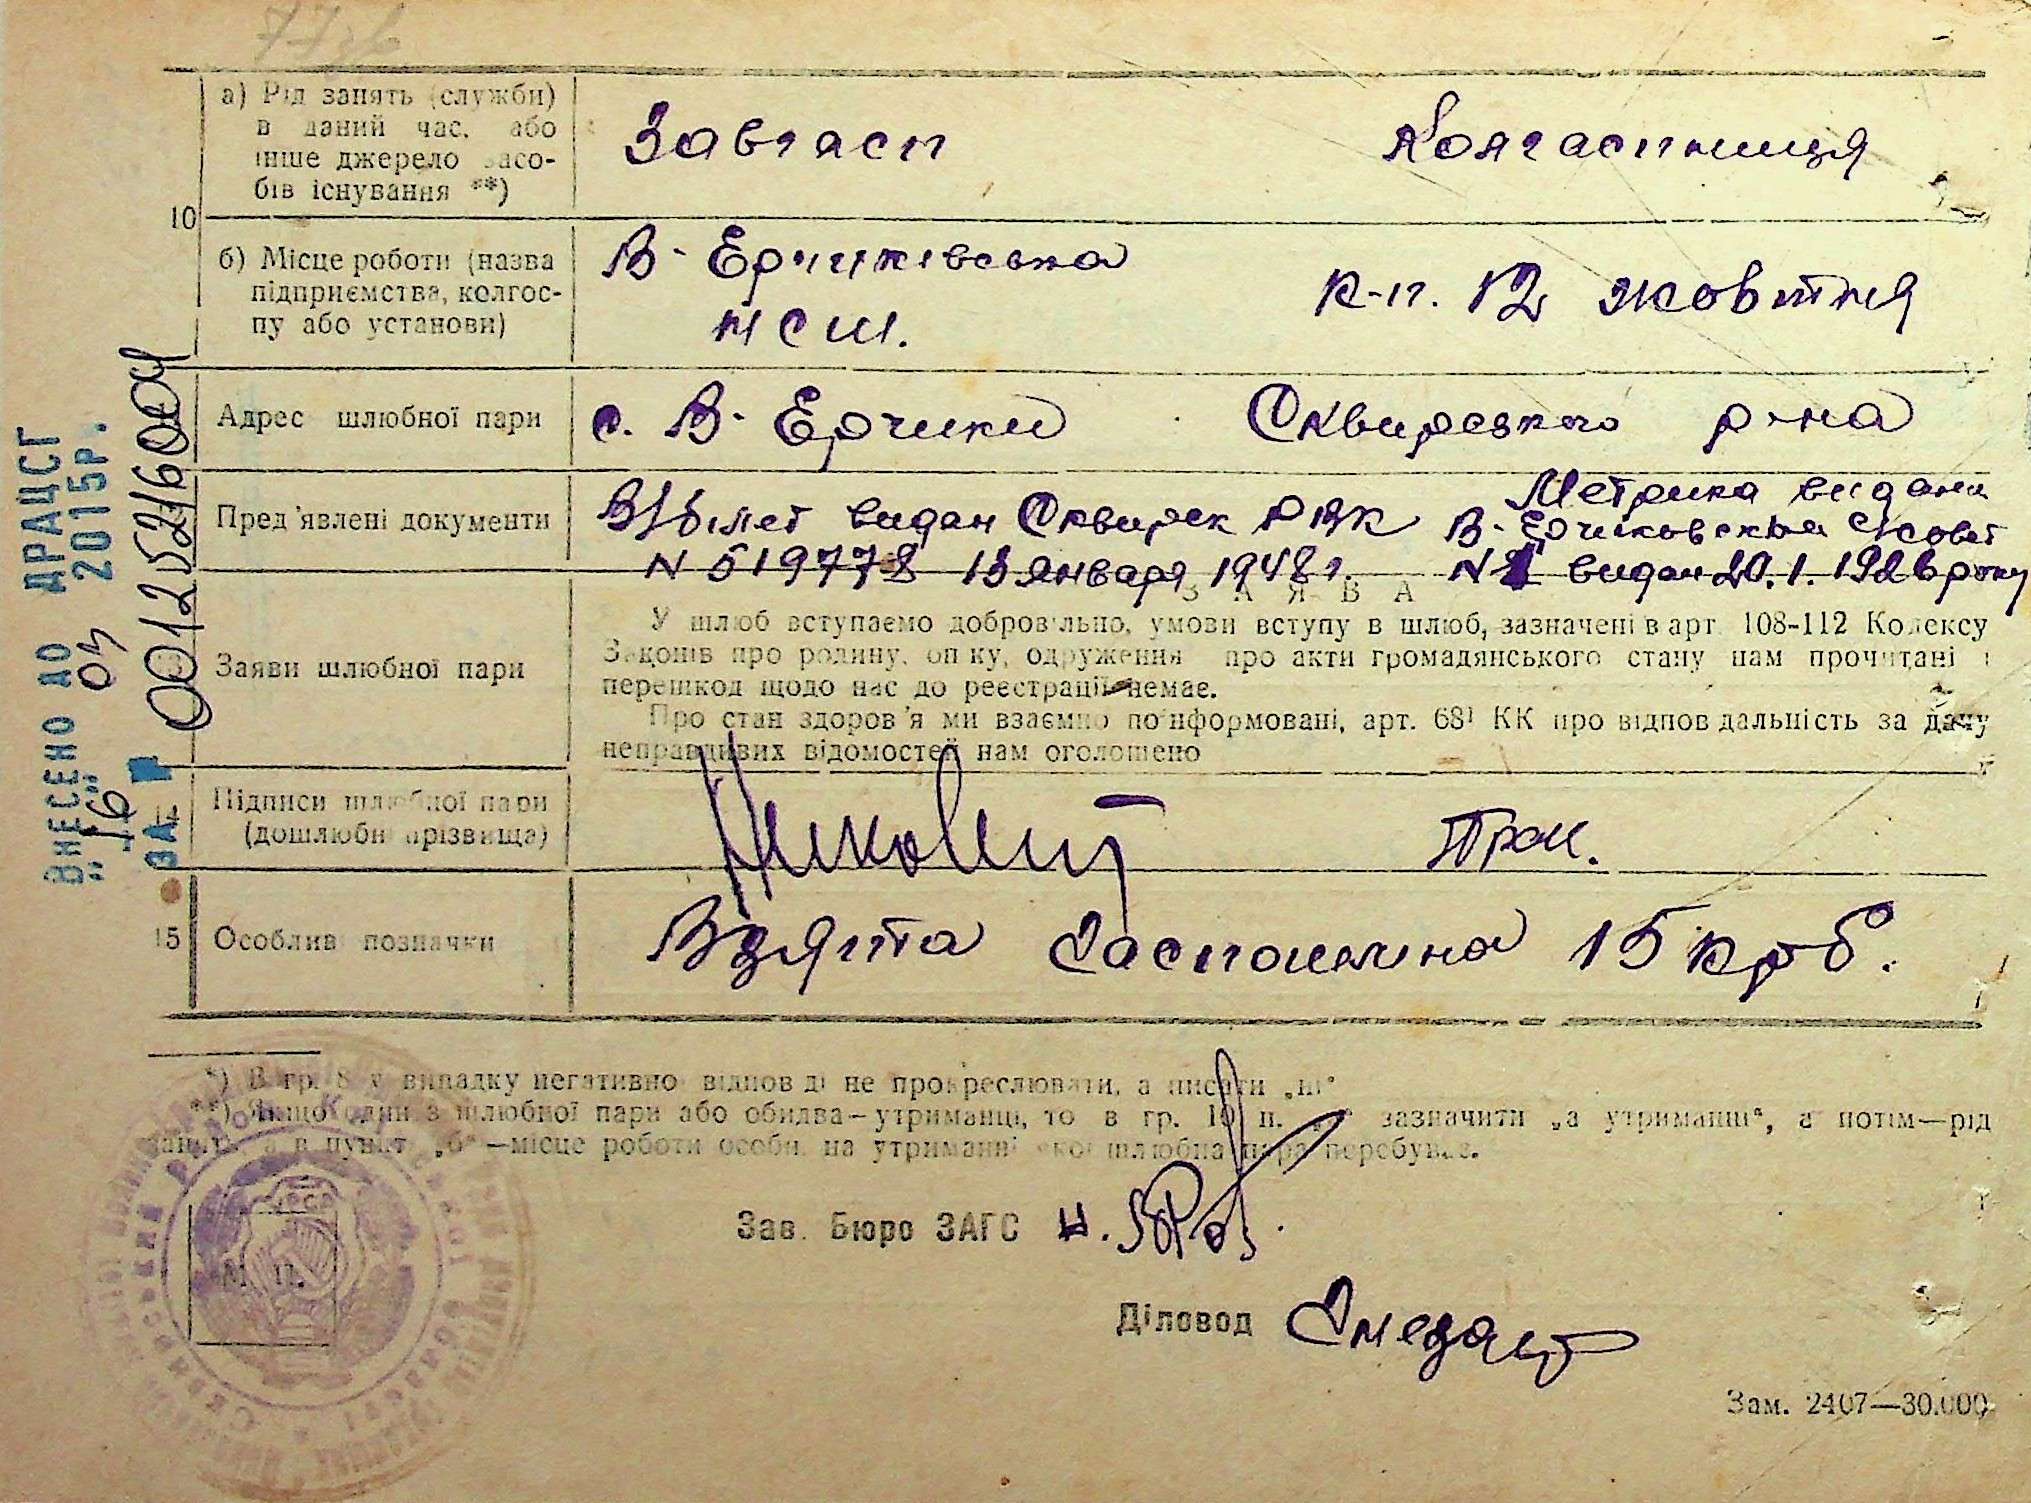 а) Рід занять (служби)
в даний час, або
інше джерело засо-
бів існування **)
Завгосп
Колгоспниця
10
б) Місце роботи (назва
підприємства, колгос-
пу або установи)
В-Ерчиківська
НСШ.
к-п. 12 жовтня
Адрес шлюбної пари
с. В-Ерчики Сквирського р-на
Пред'явлені документи
В/білет видан Сквирск РВК
N 519778 13 января 1948 г.
Метрика видана
В-Ерчиковским с/совет
видан 20.1.192 року
ЗАЯВА
Заяви шлюбної пари
У шлюб вступаємо добровільно, умови вступу в шлюб, зазначені в арт 108-112 Кодексу
Законів про родину, опіку, одруження про акти громадянського стану нам прочитані і
перешкод щодо нас до реєстрації немає.
Про стан здоров'я ми взаємно поінформовані, арт. 68¹ КК про відповідальність за дачу
неправдивих відомостей нам оголошено
Підписи шлюбної пари
(дошлюбні прізвища)
15
Особливі позначки
Взята 15 крб.
*) В гр. 8 у випадку негативної відповіді не прокреслювати, а писати „ні"
**) Якщо один з шлюбної пари або обидва—утриманці, то в гр. 10 п. зазначити „а утриманні", а потім—рід
занять, а в пункті „б"—місце роботи особи, на утриманні якої шлюбна пара перебуває.
Зав. Бюро ЗАГС
М. П.
Діловод
Зам. 2407—30.000
ВНЕСЕНО ДО ДРАЦСГ
„16" 03 2015р.
ЗА №